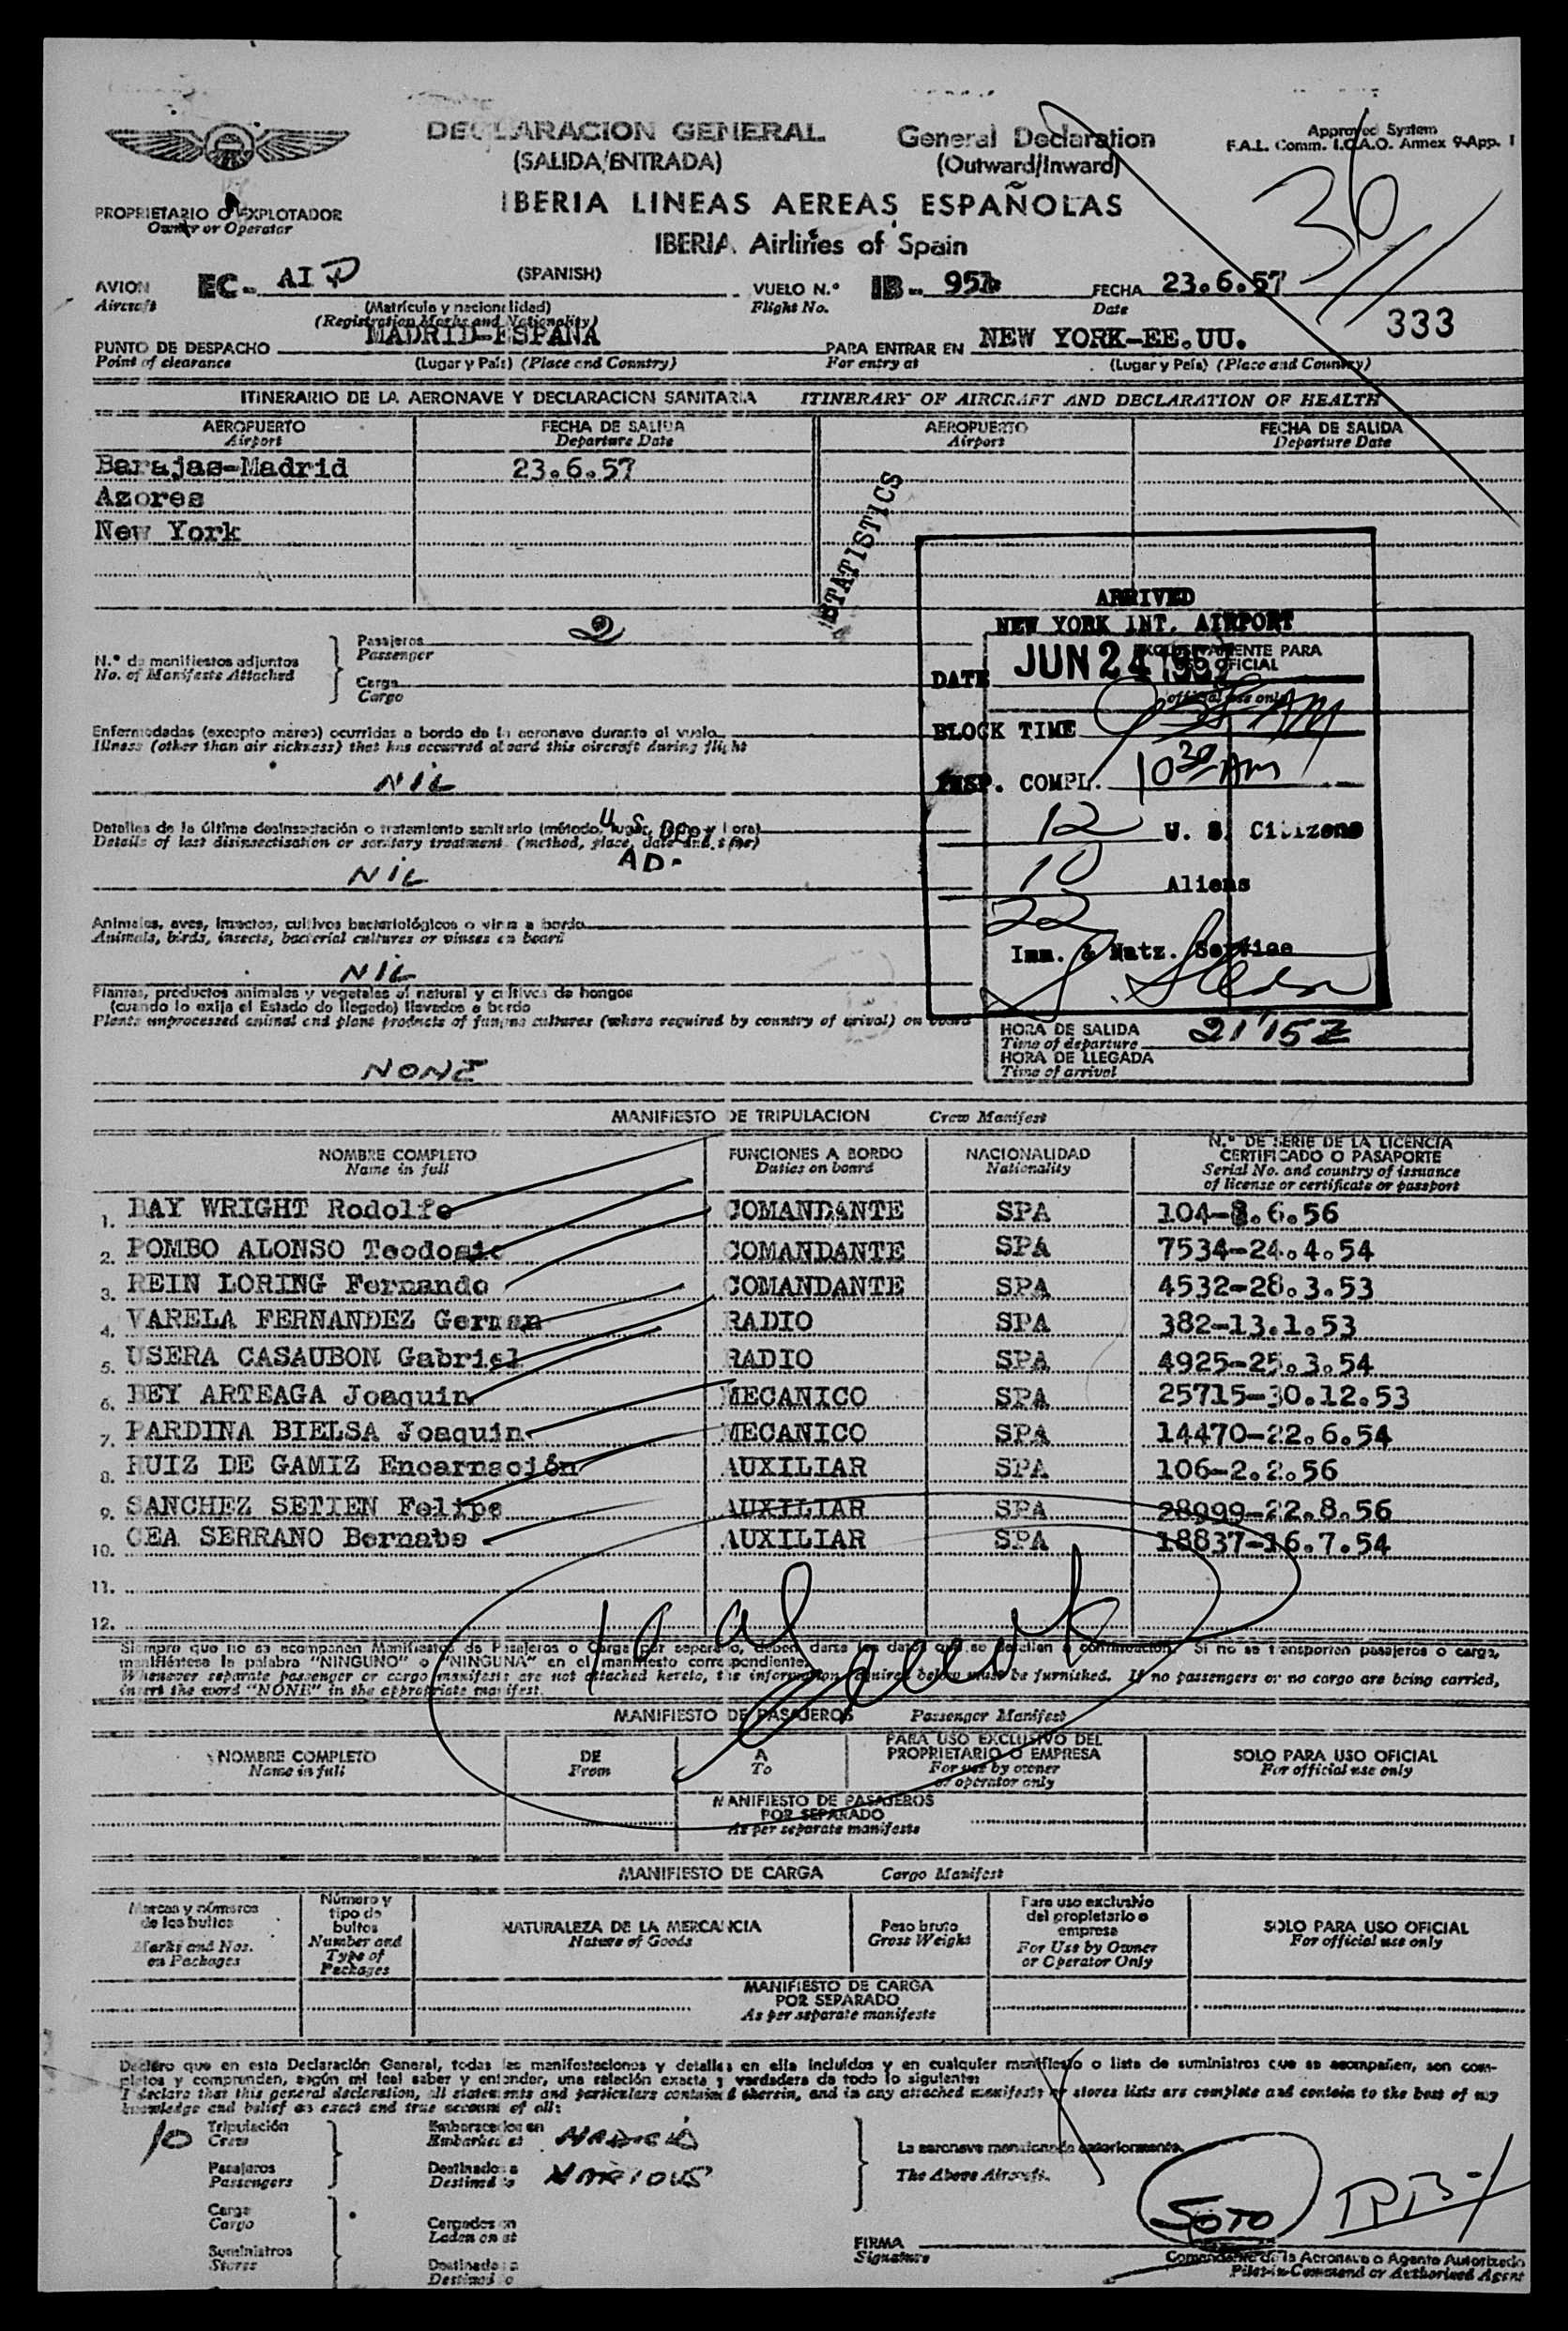 DECLARACION GENERAL General Declaration
(SALIDA/ENTRADA) (Outward/Inward)
Approved System
F.A.L. Comm. I.C.A.O. Annex 9-App. 1
36
IBERIA LINEAS AEREAS ESPAÑOLAS
IBERIA Airlines of Spain
PROPRIETARIO O EXPLOTADOR
Owner or Operator
(SPANISH)
AVION EC- AI VUELO N.º IB- FECHA 23.6.57
Aircraft (Matrícula y nacionalidad) Flight No. Date
(Registration Marks and Nationality)
333
PUNTO DE DESPACHO MADRID-ESPAÑA PARA ENTRAR EN NEW YORK-EE.UU.
Point of clearance (Lugar y País) (Place and Country) For entry at (Lugar y País) (Place and Country)
ITINERARIO DE LA AERONAVE Y DECLARACION SANITARIA ITINERARY OF AIRCRAFT AND DECLARATION OF HEALTH
AEROPUERTO FECHA DE SALIDA AEROPUERTO FECHA DE SALIDA
Airport Departure Date Airport Departure Date
Barajas-Madrid 23.6.57
Azores
New York
STATISTICS
N.º de manifiestos adjuntos
No. of Manifests Attached
Pasajeros
Passenger
Carga
Cargo
ARRIVED
NEW YORK INT. AIRPORT
EXCLUSIVAMENTE PARA
USO OFICIAL
official use only
DATE JUN 24 1957
BLOCK TIME AM
INSP. COMPL. 10 30 AM
12 U. S. Citizens
10 Aliens
22
Imm. & Natz. Service
Enfermedades (excepto mareo) ocurridas a bordo de la aeronave durante el vuelo
Illness (other than air sickness) that has occurred aboard this aircraft during flight
NIL
Detalles de la última desinsectación o tratamiento sanitario (método, lugar, fecha y hora)
Details of last disinsectisation or sanitary treatment (method, place, date and time)
NIL
Animales, aves, insectos, cultivos bacteriológicos o virus a bordo
Animals, birds, insects, bacterial cultures or viruses on board
NIL
Plantas, productos animales y vegetales al natural y cultivos de hongos
(cuando lo exija el Estado de llegada) llevados a bordo
Plants unprocessed animal and plant products of fungus cultures (where required by country of arival) on board
NONE
HORA DE SALIDA 21'15Z
Time of departure
HORA DE LLEGADA
Time of arrival
MANIFIESTO DE TRIPULACION Crew Manifest
NOMBRE COMPLETO FUNCIONES A BORDO NACIONALIDAD N.º DE SERIE DE LA LICENCIA
CERTIFICADO O PASAPORTE
Name in full Duties on board Nationality Serial No. and country of issuance
of license or certificate or passport
1. BAY WRIGHT Rodolfo COMANDANTE SPA 104-8.6.56
2. POMBO ALONSO Teodosio COMANDANTE SPA 7534-24.4.54
3. REIN LORING Fernando COMANDANTE SPA 4532-28.3.53
4. VARELA FERNANDEZ German RADIO SPA 382-13.1.53
5. USERA CASAUBON Gabriel RADIO SPA 4925-25.3.54
6. BEY ARTEAGA Joaquin MECANICO SPA 25715-30.12.53
7. PARDINA BIELSA Joaquin MECANICO SPA 14470-22.6.54
8. RUIZ DE GAMIZ Encarnación AUXILIAR SPA 106-2.2.56
9. SANCHEZ SETIEN Felipe AUXILIAR SPA 28999-22.8.56
10. CEA SERRANO Bernabe AUXILIAR SPA 18837-16.7.54
11.
12.
Siempre que no se acompañen Manifiestos de Pasajeros o Carga por separado, deben darse los datos que se detallan a continuación. Si no se transportan pasajeros o carga,
manifiéstese la palabra "NINGUNO" o "NINGUNA" en el manifiesto correspondiente.
Whenever separate passenger or cargo manifests are not attached hereto, the information required below must be furnished. If no passengers or no cargo are being carried,
insert the word "NONE" in the appropriate manifest.
MANIFIESTO DE PASAJEROS Passenger Manifest
NOMBRE COMPLETO DE A PARA USO EXCLUSIVO DEL
PROPRIETARIO O EMPRESA SOLO PARA USO OFICIAL
Name in full From To For use by owner
or operator only For official use only
MANIFIESTO DE PASAJEROS
POR SEPARADO
As per separate manifests
MANIFIESTO DE CARGA Cargo Manifest
Marcas y números
de los bultos
Marks and Nos.
on Packages
Número y
tipo de
bultos
Number and
Type of
Packages
NATURALEZA DE LA MERCANCIA
Nature of Goods
Peso bruto
Gross Weight
Para uso exclusivo
del propietario o
empresa
For Use by Owner
or Operator Only
SOLO PARA USO OFICIAL
For official use only
MANIFIESTO DE CARGA
POR SEPARADO
As per separate manifests
Declaro que en esta Declaración General, todas las manifestaciones y detalles en ella incluidos y en cualquier manifiesto o lista de suministros que se acompañen, son com-
pletos y comprenden, según mi leal saber y entender, una relación exacta y verdadera de todo lo siguiente:
I declare that this general declaration, all statements and particulars contained therein, and in any attached manifests or stores lists are complete and contain to the best of my
knowledge and belief an exact and true account of all:
10 Tripulación
Crew
Embarcados en
Embarked at MADRID
Pasajeros
Passengers
Destinados a
Destined to VARIOUS
La aeronave mencionada anteriormente.
The Above Aircraft.
Carga
Cargo
Cargados en
Laden on at
Suministros
Stores
Destinados a
Destined to
SOTO
FIRMA
Signature
Comandante de la Aeronave o Agente Autorizado
Pilot-in-Command or Authorised Agent